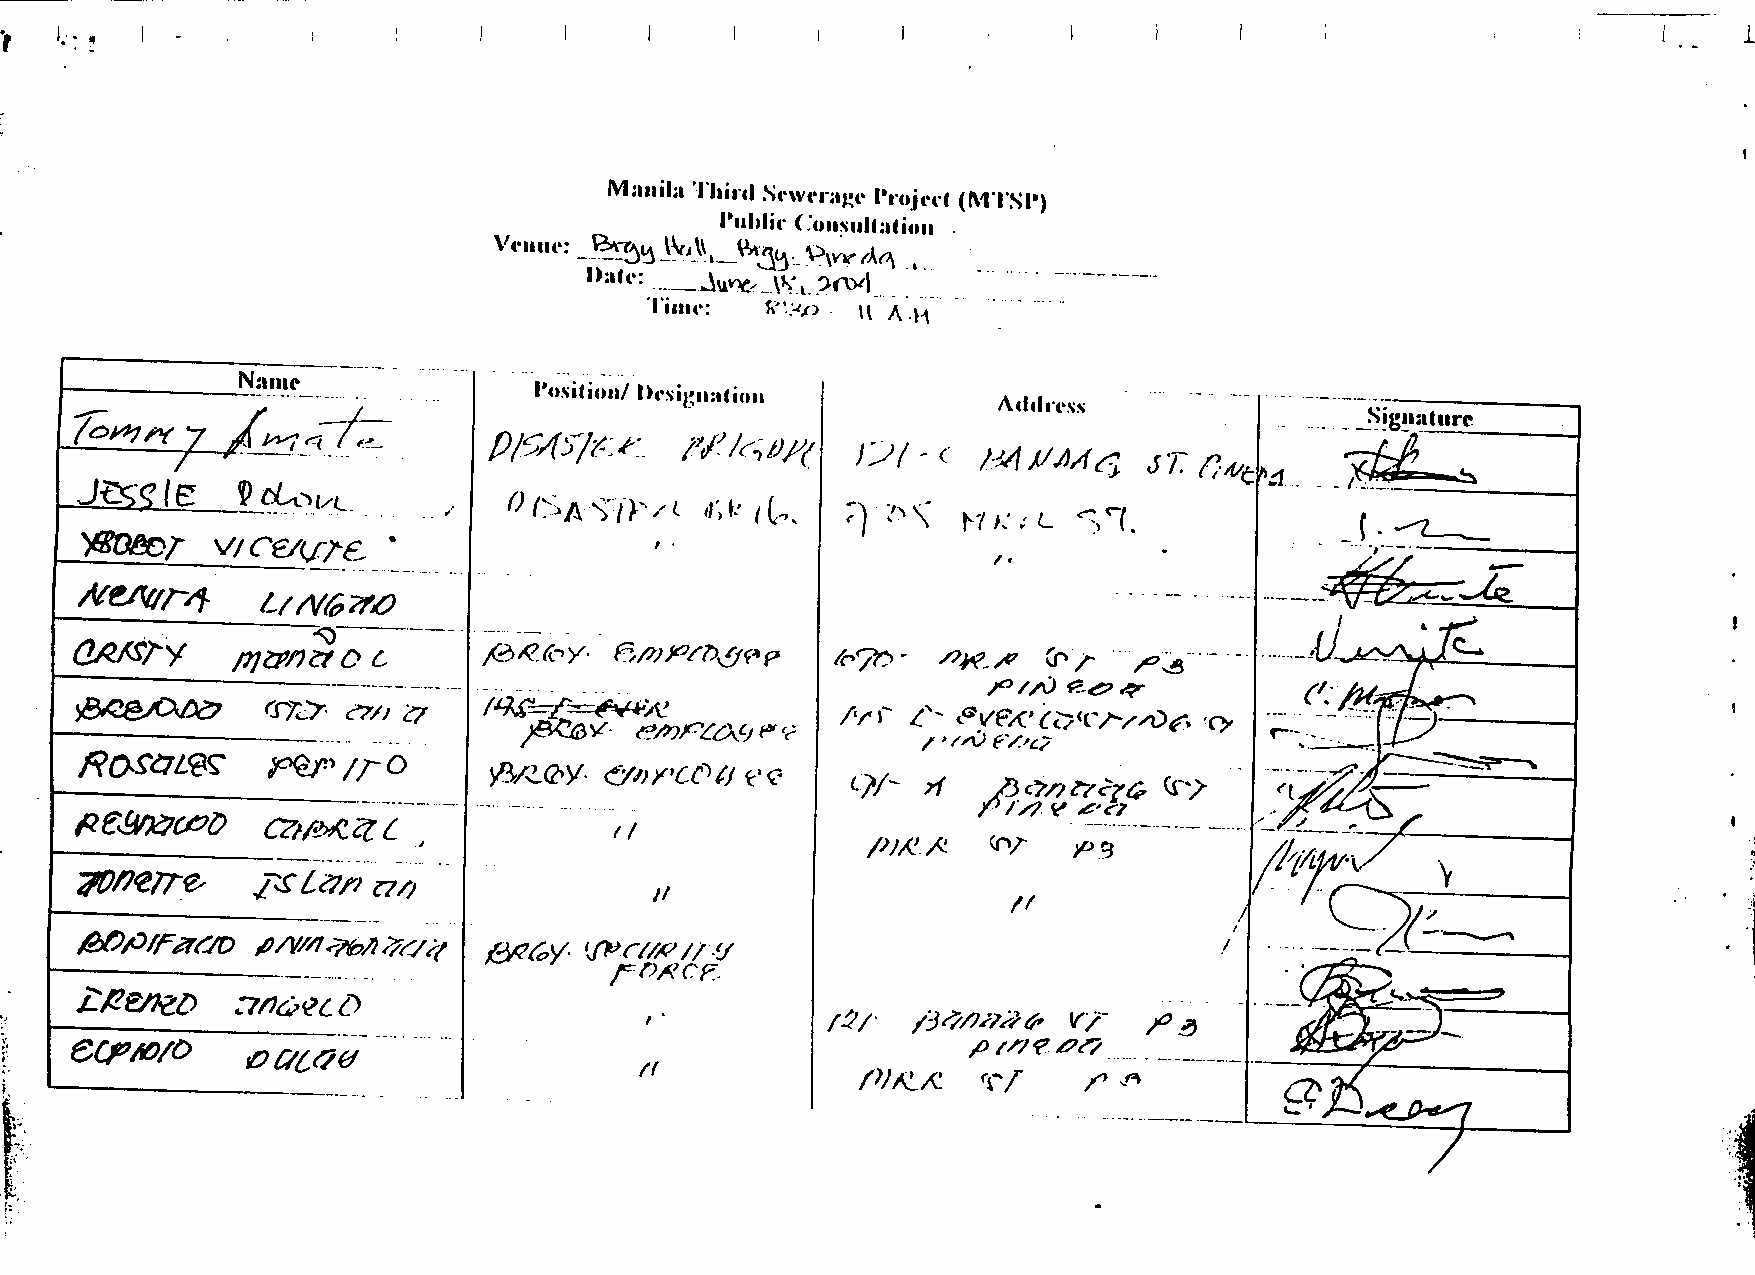 Manila Third Sewerage Project (MTSP)
Public Consultation
Venue: Brgy Hall, Brgy. Pineda,
Date: June 18, 2004
Time: 8:30 - 11 A.M
Name Position/ Designation Address Signature
Tommy Amate DISASTER 121-C BANAAG ST. PINEDA
JESSIE DISASTER ST.
VICENTE " "
NENITA LINGAO
CRISTY mañaol BRGY. Employee 670- M.R.R ST P3
PINEDA C.
BRENDA STA ana 145
BRGY employee 145 E- EVERLASTING ST
PINEDA
ROSALES PEPITO BRGY. employee 91- A Banaag ST
Pineda
Reynaldo CABRAL, " MRR ST P3
Jonette ISLanan " "
BONIFacio BRGY. SECURITY
FORCE
IRENEO angelo " 121 Banaag ST P3
Pineda
ELPIDIO DULAY " MRR ST P3